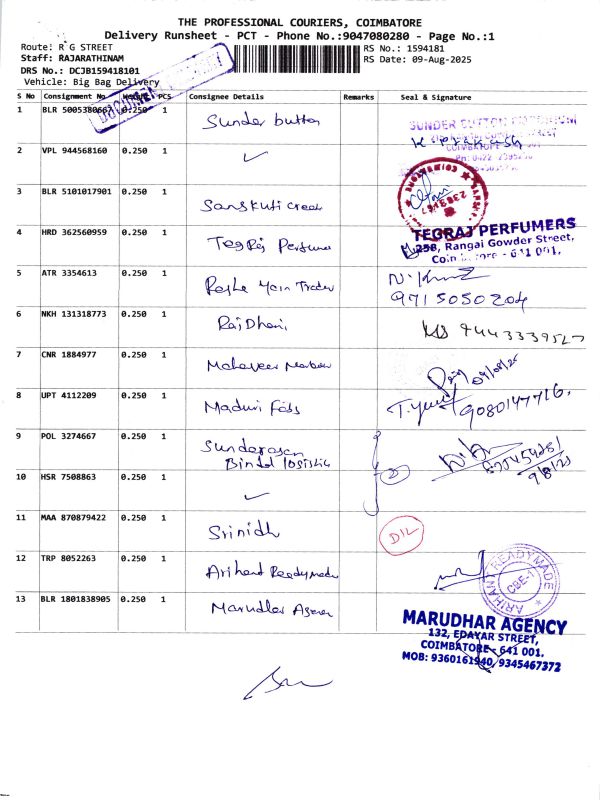 THE PROFESSIONAL COURIERS, COIMBATORE
Delivery Runsheet - PCT - Phone No.:9047080280 - Page No.:1
Route: R G STREET
RS No.: 1594181
Staff: RAJARATHINAM
RS Date: 09-Aug-2025
DRS No.: DCJB159418101
Vehicle: Big Bag Delivery
DOCUMENT
S No Consignment No PCS Consignee Details Remarks Seal & Signature
1 BLR 5005380667 0.250 1 Sunder button
SUNDER BUTTON
COIMBATORE
2 VPL 944568160 0.250 1 ✓
3 BLR 5101017901 0.250 1 Sanskuti
4 HRD 362560959 0.250 1 Tegraj Perfumer
TEGRAJ PERFUMERS
258, Rangai Gowder Street,
Coimbatore - 641 001.
5 ATR 3354613 0.250 1 Trader
9715050204
6 NKH 131318773 0.250 1 RajDhani
9443339527
7 CNR 1884977 0.250 1 Mahaveer
09/08/25
8 UPT 4112209 0.250 1 Maduri
9080147716.
9 POL 3274667 0.250 1 Sunderasan
Bindal logistic
9/8/25
10 HSR 7508863 0.250 1 ✓
2
11 MAA 870879422 0.250 1 Srinidhi
D1L
12 TRP 8052263 0.250 1 Arihant Readymade
ARIHANT READYMADE
CBE-1
13 BLR 1801838905 0.250 1 Marudhar Agency
MARUDHAR AGENCY
132, EDAYAR STREET,
COIMBATORE - 641 001.
MOB: 9360161940/9345467372